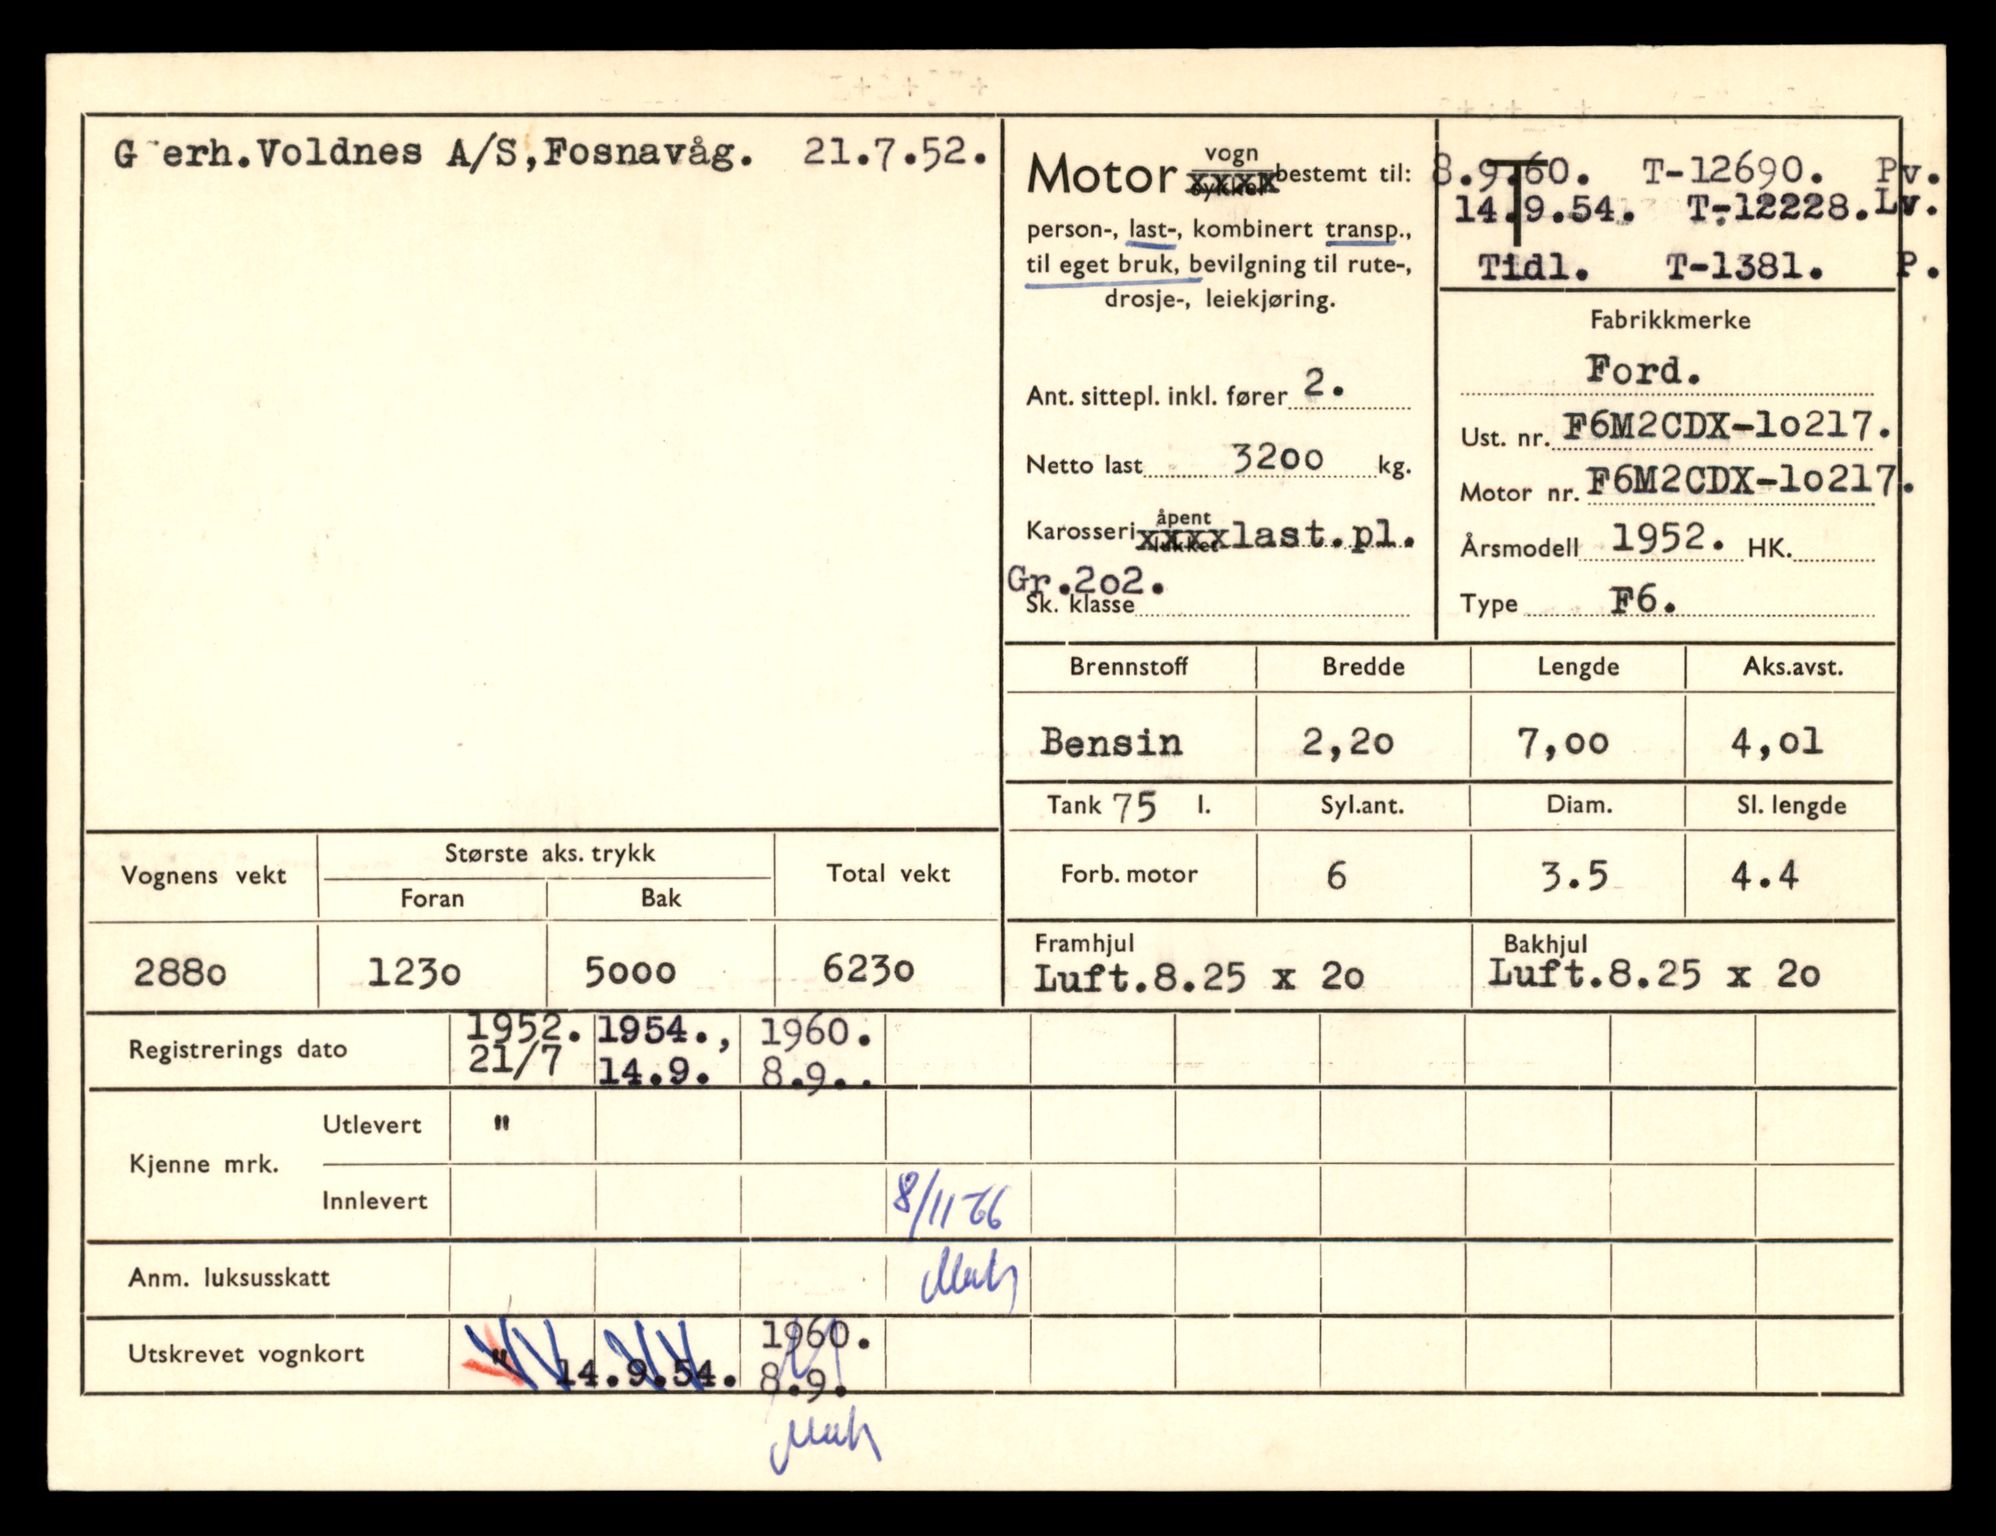 G erh.Voldnes A/S,Fosnavåg. 21.7.52.
Motor vogn
xxxx bestemt til:
person-, last-, kombinert transp.,
til eget bruk, bevilgning til rute-,
drosje-, leiekjøring.
Ant. sittepl. inkl. fører 2.
Netto last 3200 kg.
Karosseri åpent
xxxx last.pl.
Gr.2o2.
Sk. klasse
T
8.9.60. T-12690. Pv.
14.9.54. T-12228.Lv.
Tidl. T-1381. P.
Fabrikkmerke
Ford.
Ust. nr. F6M2CDX-lo217.
Motor nr. F6M2CDX-lo217.
Årsmodell 1952. HK.
Type F6.
Brennstoff Bredde Lengde Aks.avst.
Bensin 2,2o 7,oo 4,ol
Tank 75 l. Syl.ant. Diam. Sl. lengde
Forb. motor 6 3.5 4.4
Framhjul Bakhjul
Luft.8.25 x 2o Luft.8.25 x 2o
Vognens vekt Største aks. trykk Total vekt
Foran Bak
288o 123o 5ooo 623o
Registrerings dato 1952. 1954., 1960.
21/7 14.9. 8.9..
Kjenne mrk. Utlevert "
Innlevert 8/11-66
Anm. luksusskatt
Utskrevet vognkort " 14.9.54. 1960.
8.9.